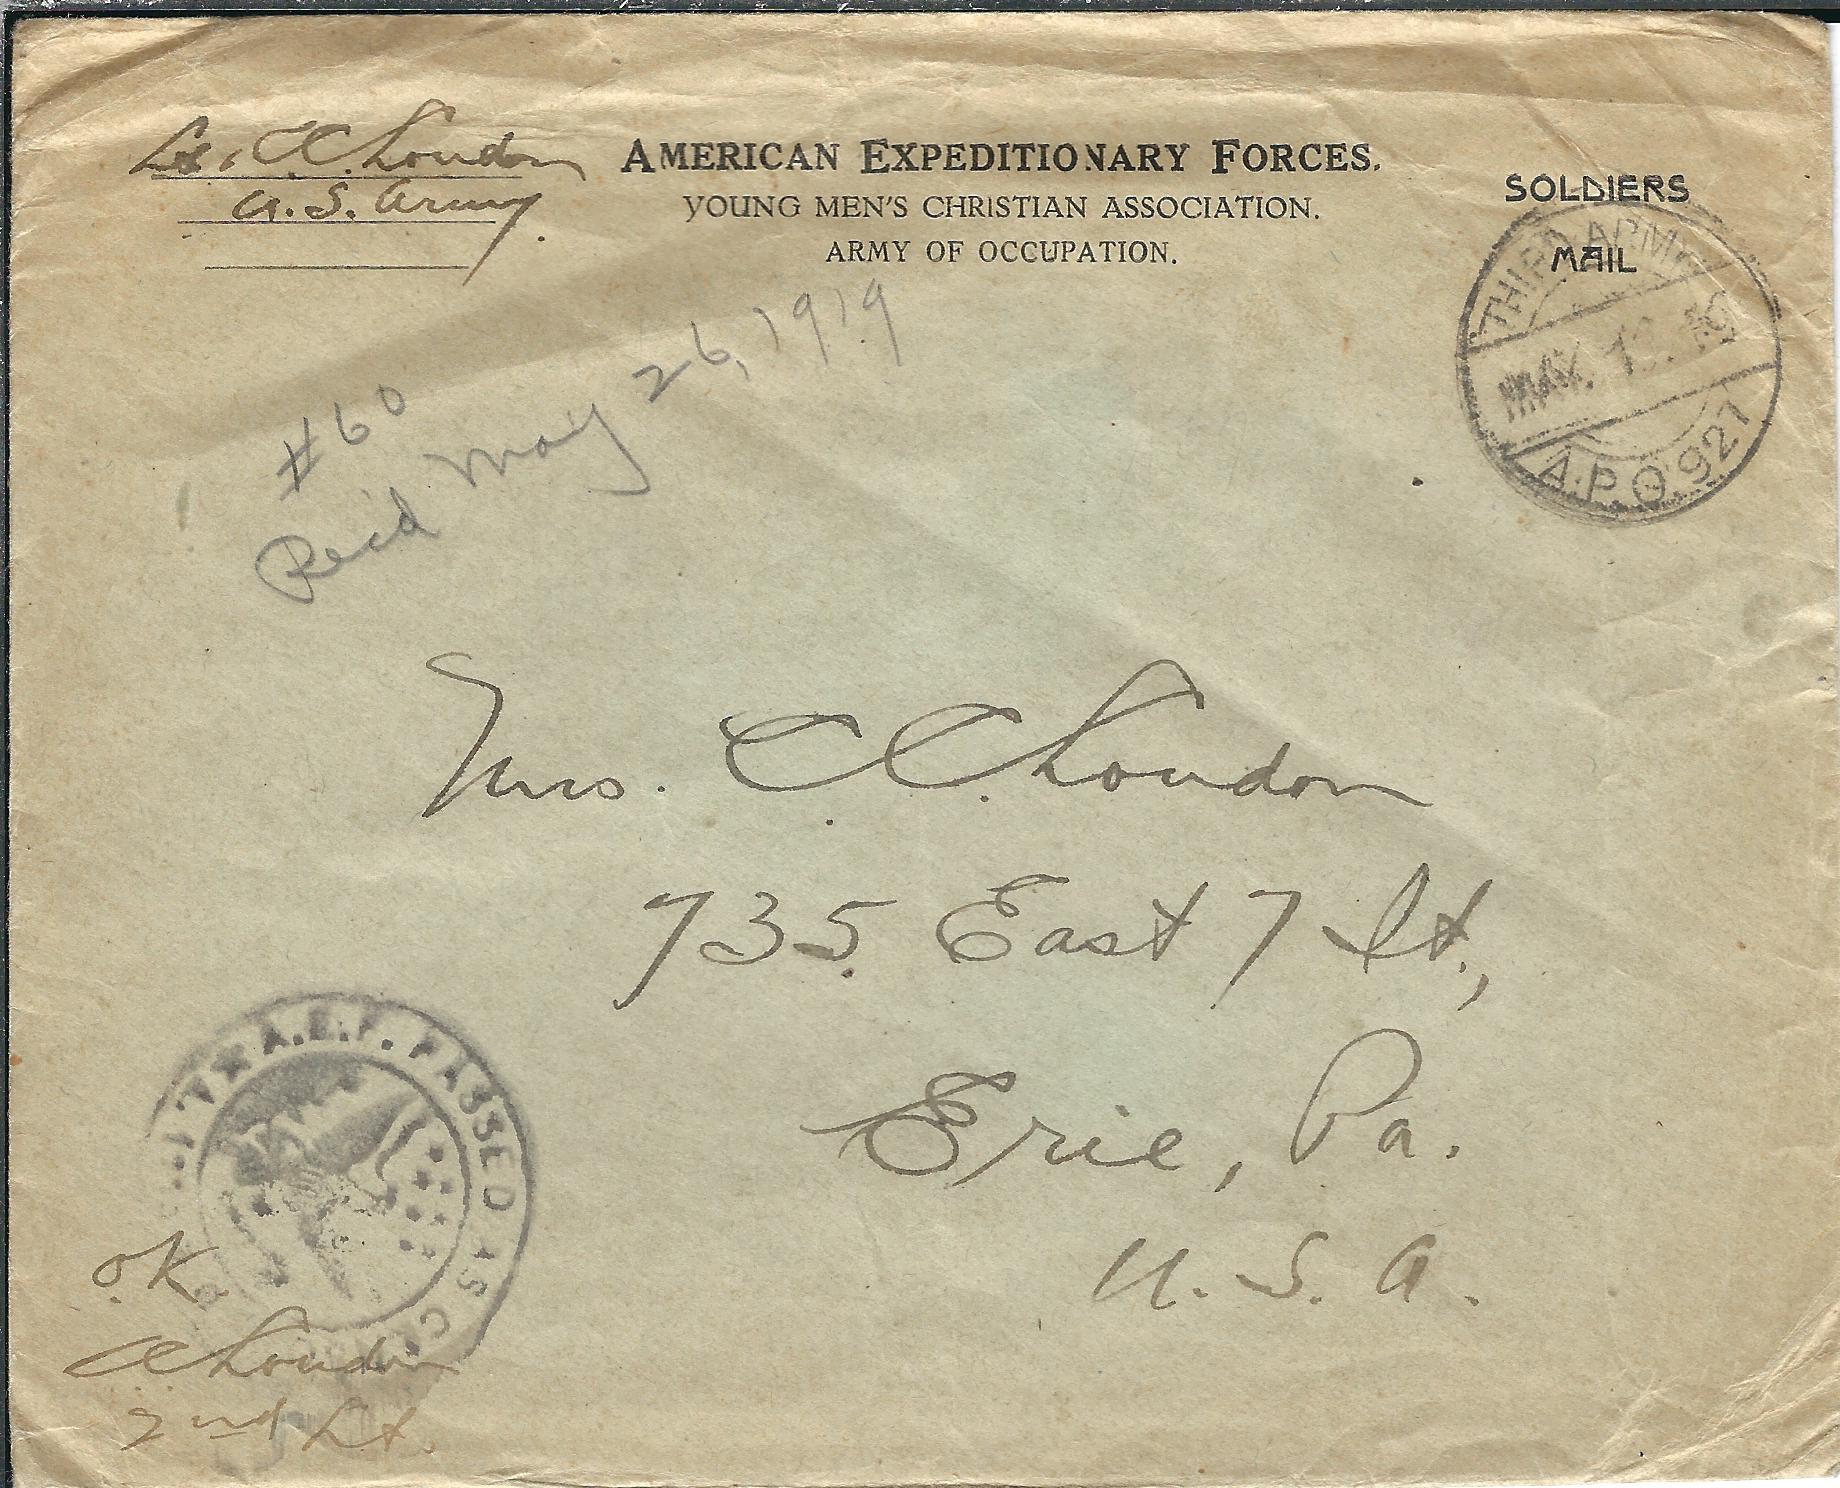 Lt. C.C. Loudon
U.S. Army.
AMERICAN EXPEDITIONARY FORCES.
YOUNG MEN'S CHRISTIAN ASSOCIATION.
ARMY OF OCCUPATION.
SOLDIERS
MAIL
THIRD ARMY
MAY. 19
A.P.O. 927
#60
Rec'd May 26, 1919
Mrs. C.C. Loudon
735 East 7 St.,
Erie, Pa.
U.S.A.
A.E.F. PASSED AS
O.K.
C.C. Loudon
2nd Lt.